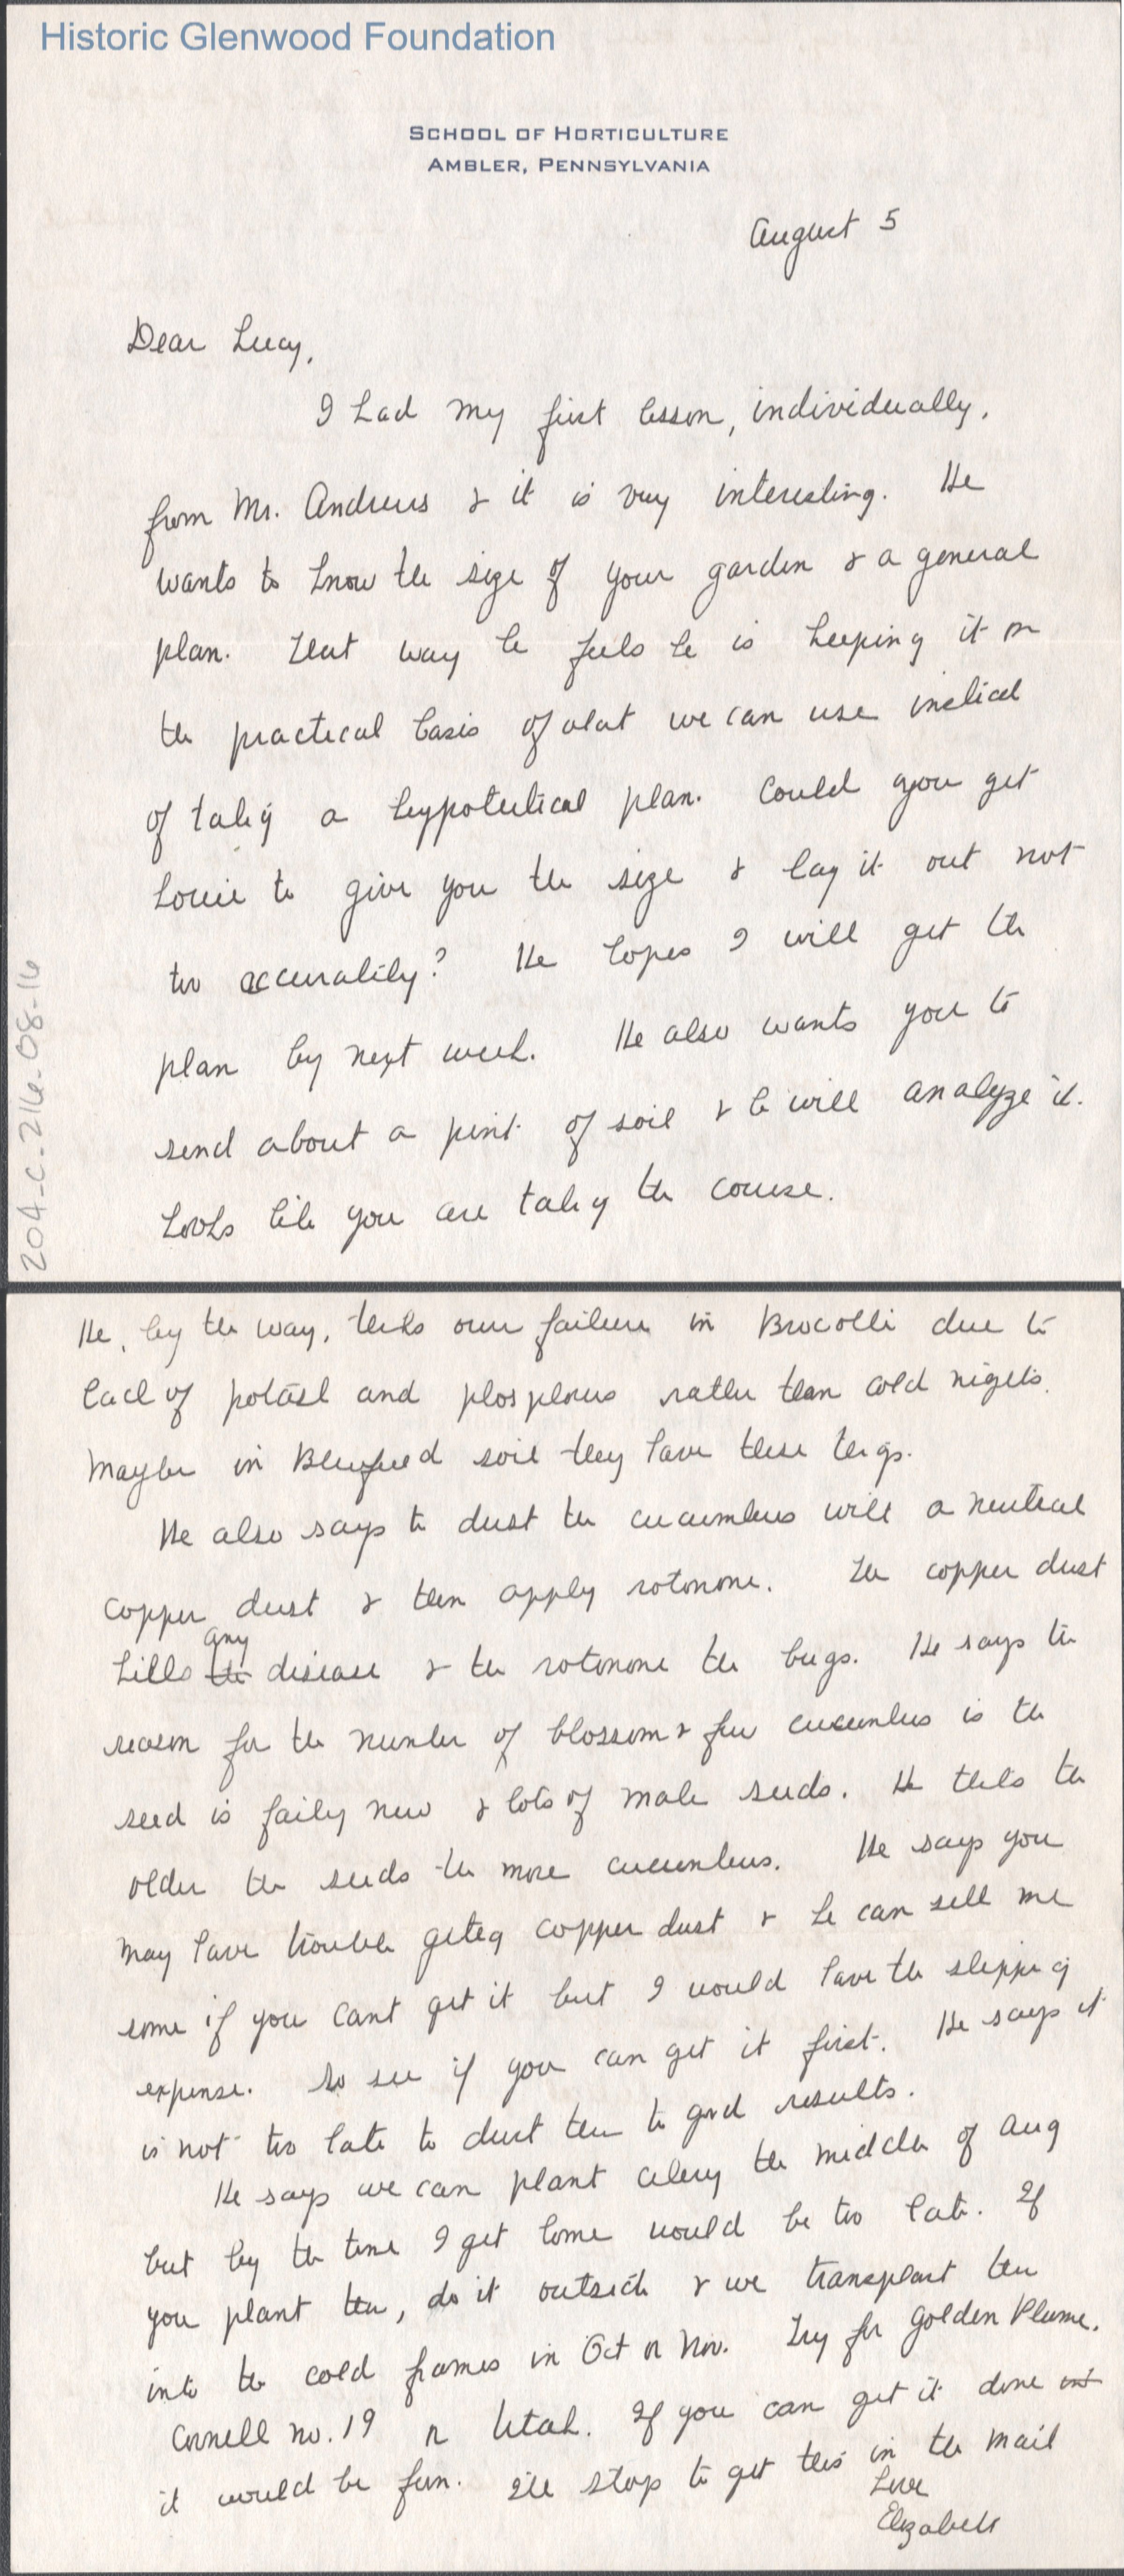 Historic Glenwood Foundation
SCHOOL OF HORTICULTURE
AMBLER, PENNSYLVANIA
August 5
Dear Lucy,
I had my first lesson, individually,
from Mr. Andrews & it is very interesting. He
wants to know the size of your garden & a general
plan. That way he feels he is keeping it on
the practical basis of what we can use instead
of taking a hypothetical plan. Could you get
Louie to give you the size & lay it out not
too accurately? He hopes I will get the
plan by next week. He also wants you to
send about a pint of soil & he will analyze it.
Looks like you are taking the course.
204-c-216-08-16
He, by the way, thinks our failure in Brocolli due to
lack of potash and phosphorus rather than cold nights.
Maybe in Bluefield soil they have these things.
He also says to dust the cucumbers with a neutral
copper dust & then apply rotonone. The copper dust
any
kills the disease & the rotonone the bugs. He says the
reason for the number of blossom & few cucumbers is the
seed is faily new & lots of male seeds. He thinks the
older the seeds the more cucumbers. He says you
may have trouble geting copper dust & he can sell me
some if you cant get it but I would have the shipping
expense. So see if you can get it first. He says it
is not too late to dust them to good results.
He says we can plant celery the middle of Aug
but by the time I get home would be too late. If
you plant them, do it outside & we transplant them
into the cold frames in Oct or Nov. Try for Golden Plume,
Cornell no. 19 or Utah. If you can get it done
it would be fun. I'll stop to get this in the mail
Love
Elizabeth